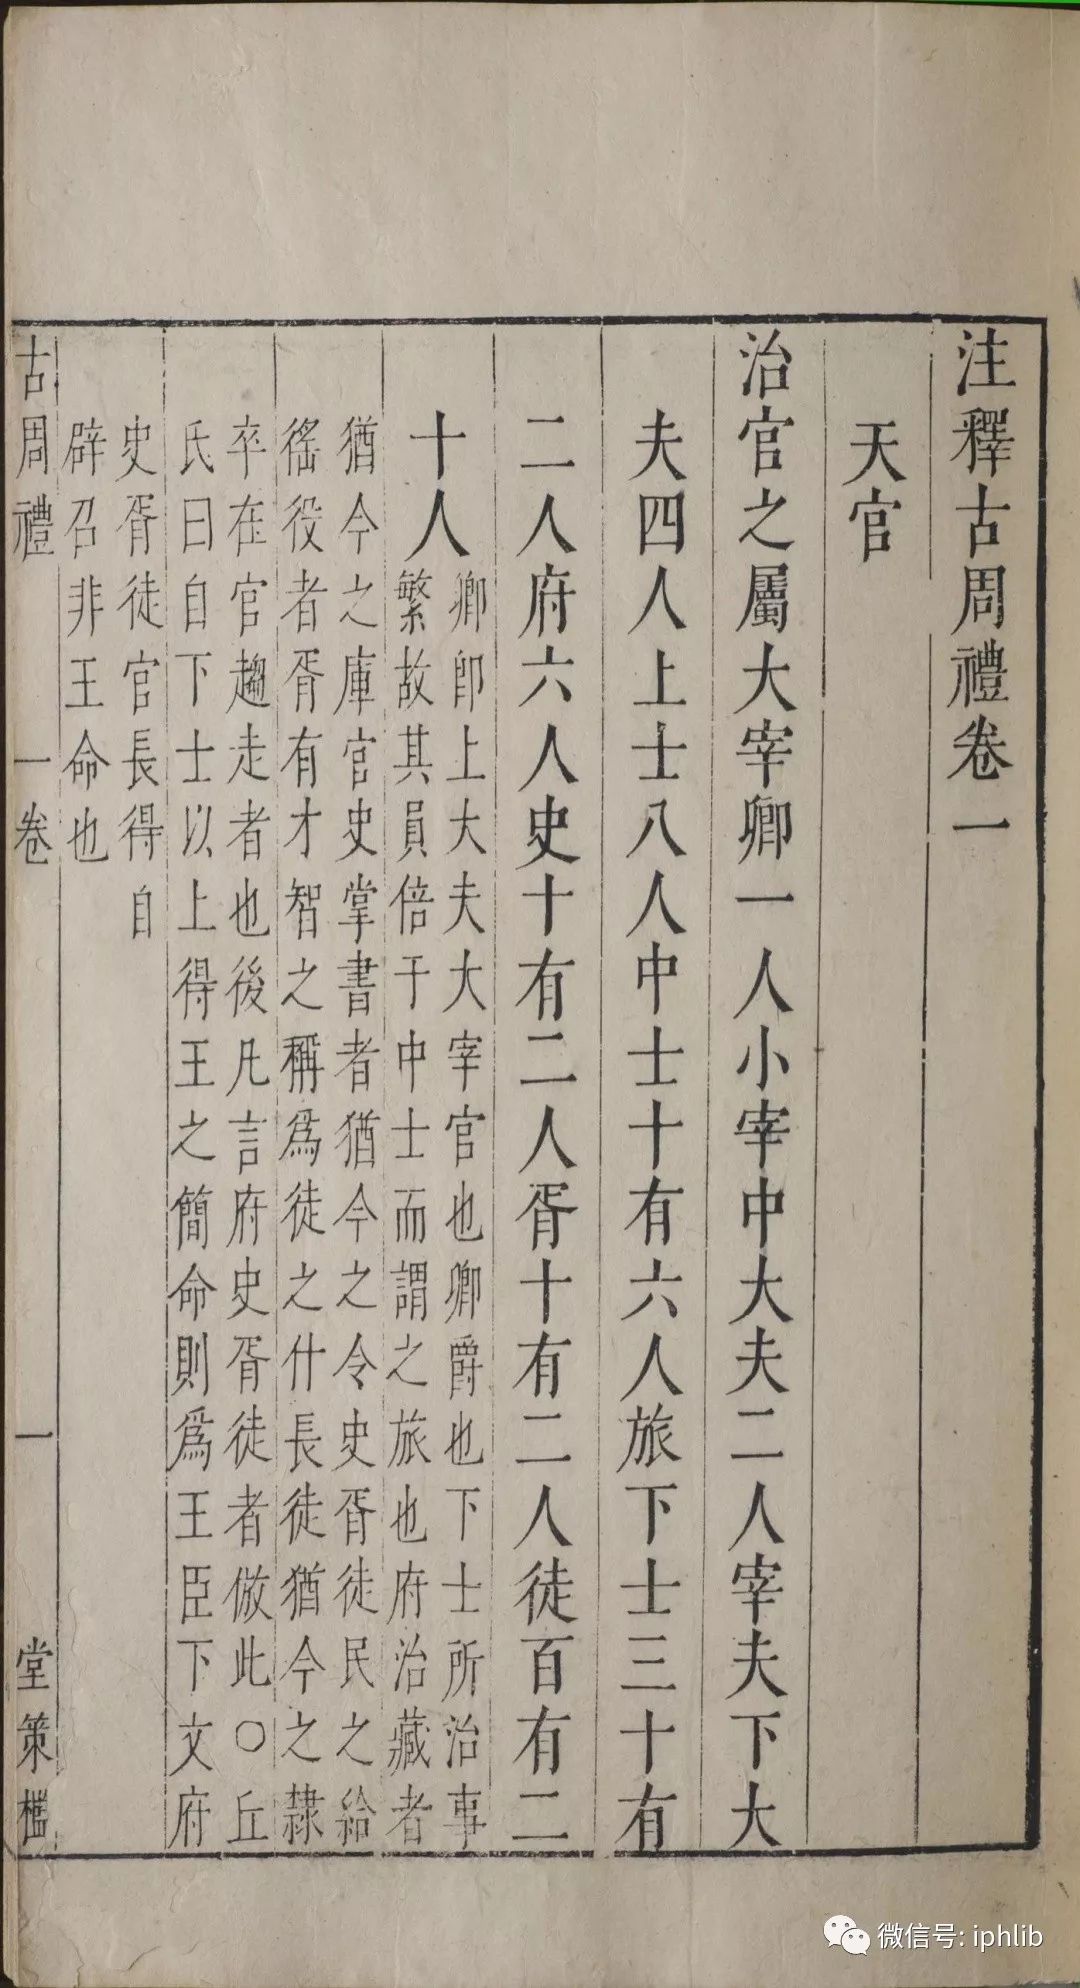 注釋古周禮卷一
天官
治官之屬大宰卿一人小宰中大夫二人宰夫下大
夫四人上士八人中士十有六人旅下士三十有
二人府六人史十有二人胥十有二人徒百有二
十人
卿卽上大夫大宰官也卿爵也下士所治事
繁故其員倍于中士而謂之旅也府治藏者
猶今之庫官史掌書者猶今之令史胥徒民之給
徭役者胥有才智之稱爲徒之什長徒猶今之隸
卒在官趨走者也後凡言府史胥徒者倣此〇丘
氏曰自下士以上得王之簡命則爲王臣下文府
史胥徒官長得自
辟召非王命也
古周禮 一卷 一 堂策檻
微信号: iphlib